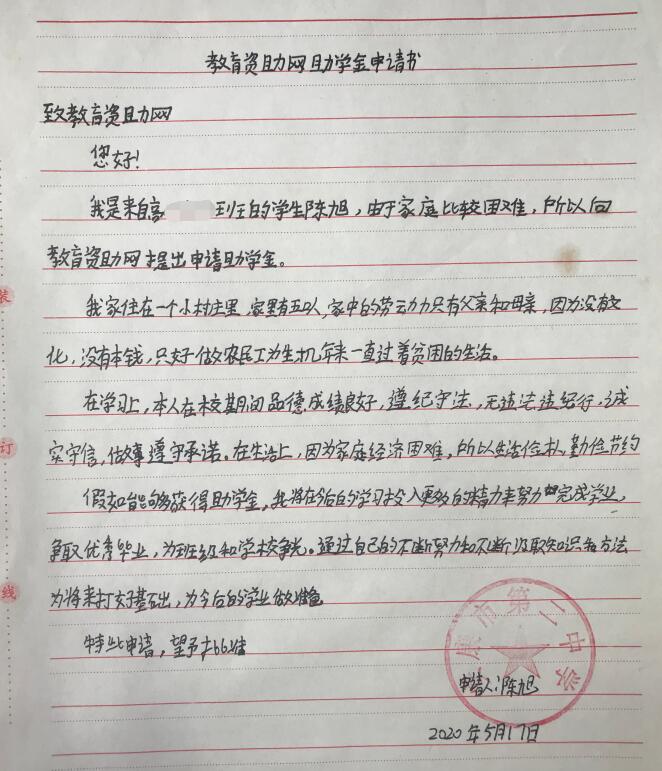 教育资助网助学金申请书
致教育资助网
您好!
我是来自高 班的学生陈旭,由于家庭比较困难,所以向
教育资助网提出申请助学金。
我家住在一个小村庄里,家里有五口人,家中的劳动力只有父亲和母亲,因为没有文
化,没有本钱,只好做农民工为生,几年来一直过着贫困的生活。
在学习上,本人在校期间品德,成绩良好,遵纪守法,无违法违纪行,诚
实守信,做事遵守承诺。在生活上,因为家庭经济困难,所以生活俭朴,勤俭节约
假如能够获得助学金,我将在今后的学习投入更多的精力来努力完成学业,
争取优秀毕业,为班级和学校争光。通过自己的不断努力和不断汲取知识和方法
为将来打好基础,为今后的学业做准备
特此申请,望予批准
市第二中学
申请人:陈旭
2020年5月17日
装
订
线